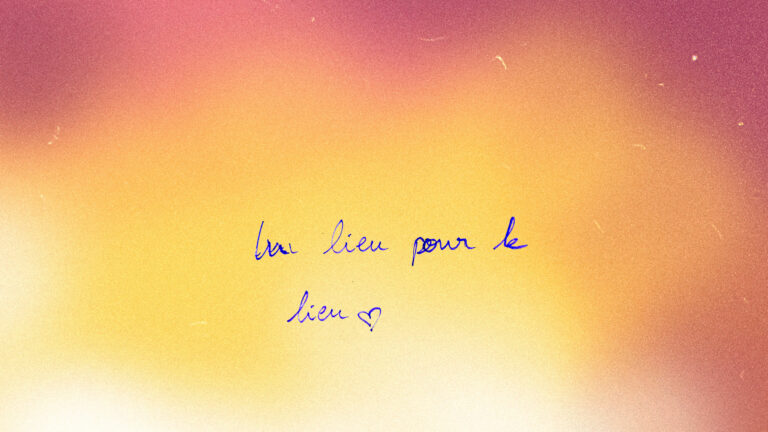 Un lieu pour le
lieu ♡